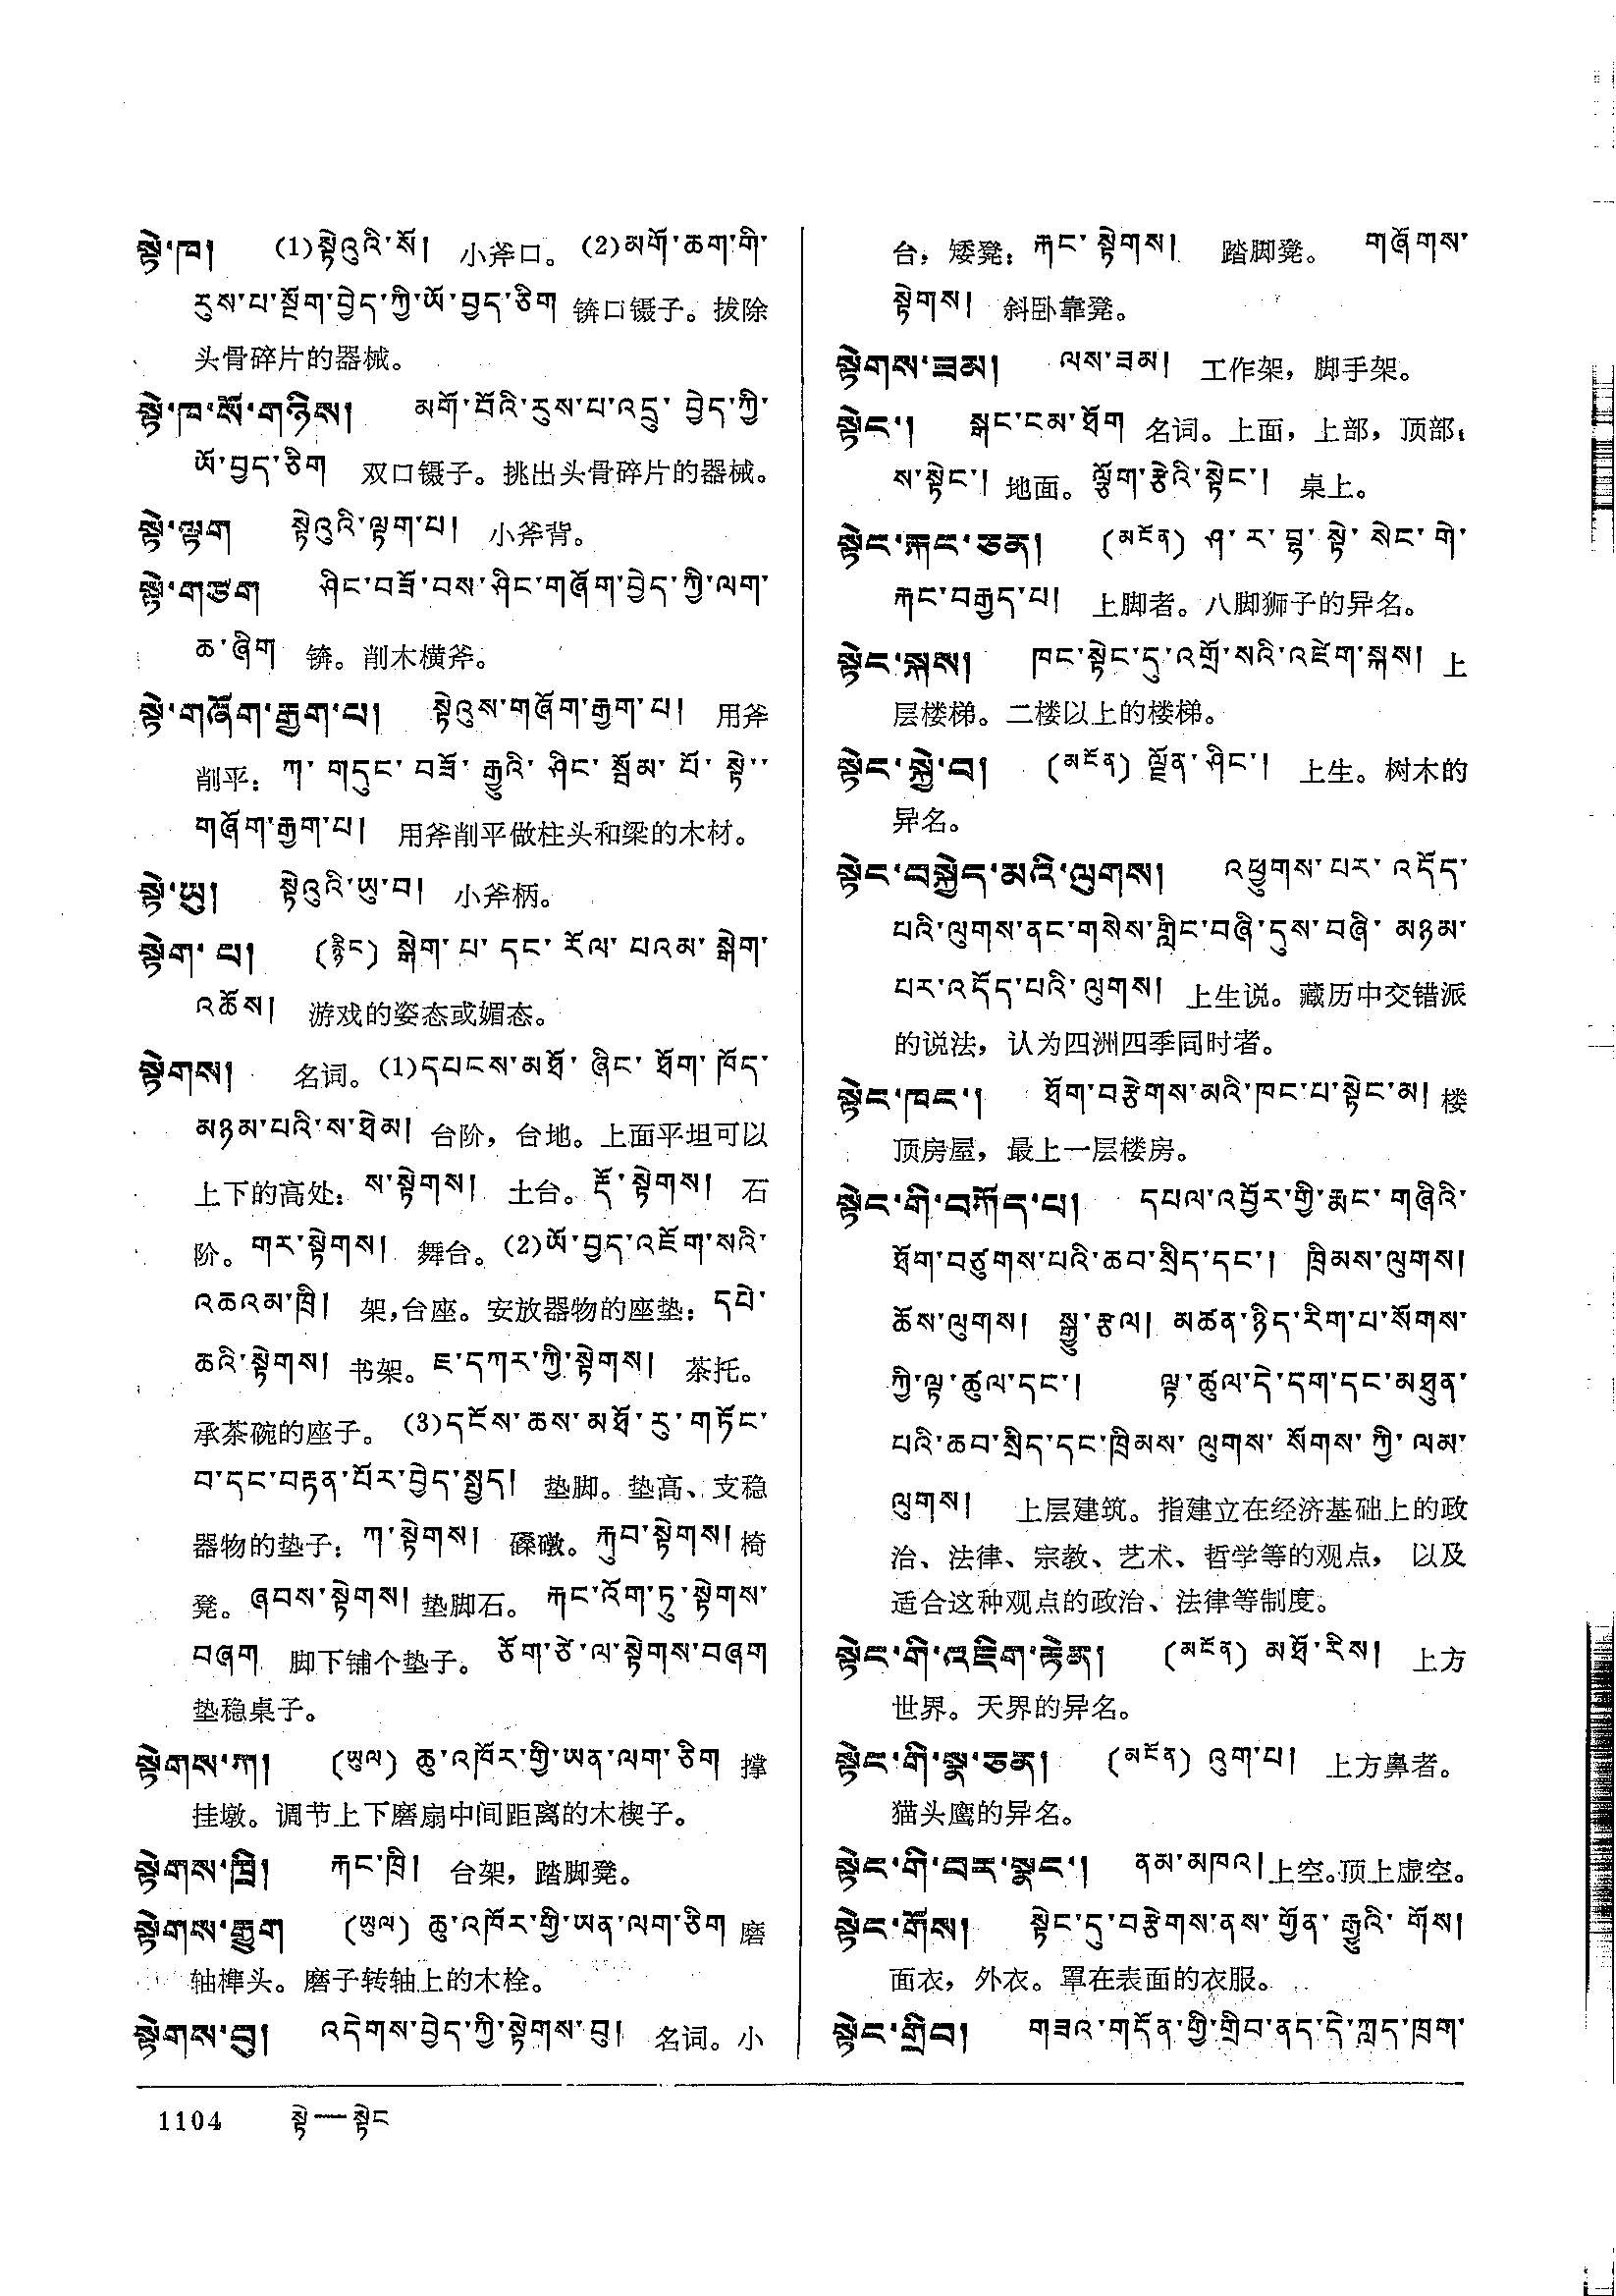 སྟེ་ཁ། (1)སྟེའུའི་སོ། 小斧口。(2)མགོ་ཆག་གི་
རུས་པ་སྔོག་བྱེད་ཀྱི་ཡོ་བྱད་ཅིག 锛口镊子。拔除
头骨碎片的器械。
སྟེ་ཁ་སོ་གཉིས། མགོ་བོའི་རུས་པ་འདྲུ་བྱེད་ཀྱི་
ཡོ་བྱད་ཅིག 双口镊子。挑出头骨碎片的器械。
སྟེ་ལྟག སྟེའུའི་ལྟག་པ། 小斧背。
སྟེ་གཙག ཤིང་བཟོ་བས་ཤིང་གཞོག་བྱེད་ཀྱི་ལག་
ཆ་ཞིག 锛。削木横斧。
སྟེ་གཞོག་རྒྱག་པ། སྟེའུས་གཞོག་རྒྱག་པ། 用斧
削平：ཀ་གདུང་བཟོ་རྒྱུའི་ཤིང་སྦོམ་པོ་སྟེ་
གཞོག་རྒྱག་པ། 用斧削平做柱头和梁的木材。
སྟེ་ཡུ། སྟེའུའི་ཡུ་བ། 小斧柄。
སྟེག་པ། (རྙིང) སྒེག་པ་དང་རོལ་པའམ་སྒེག་
འཆོས། 游戏的姿态或媚态。
སྟེགས། 名词。(1)དཔངས་མཐོ་ཞིང་ཐོག་ཁོད་
མཉམ་པའི་ས་ཐེམ། 台阶，台地。上面平坦可以
上下的高处：ས་སྟེགས། 土台。རྡོ་སྟེགས། 石
阶。གར་སྟེགས། 舞台。(2)ཡོ་བྱད་འཇོག་སའི་
འཆའམ་ཁྲི། 架，台座。安放器物的座垫：དཔེ་
ཆའི་སྟེགས། 书架。ཇ་དཀར་ཀྱི་སྟེགས། 茶托。
承茶碗的座子。(3)དངོས་ཆས་མཐོ་རུ་གཏོང་
བ་དང་བརྟན་པོར་བྱེད་སྤྱད། 垫脚。垫高、支稳
器物的垫子：ཀ་སྟེགས། 磉礅。རྐུབ་སྟེགས། 椅
凳。ཞབས་སྟེགས། 垫脚石。རྐང་འོག་ཏུ་སྟེགས་
བཞག 脚下铺个垫子。ཅོག་ཙེ་ལ་སྟེགས་བཞག
垫稳桌子。
སྟེགས་ཀ། (ཡུལ) ཆུ་འཁོར་གྱི་ཡན་ལག་ཅིག 撑
挂墩。调节上下磨扇中间距离的木楔子。
སྟེགས་ཁྲི། རྐང་ཁྲི། 台架，踏脚凳。
སྟེགས་རྒྱུག (ཡུལ) ཆུ་འཁོར་གྱི་ཡན་ལག་ཅིག 磨
轴榫头。磨子转轴上的木栓。
སྟེགས་བུ། འདེགས་བྱེད་ཀྱི་སྟེགས་བུ། 名词。小
台，矮凳：རྐང་སྟེགས། 踏脚凳。 གཞོགས་
སྟེགས། 斜卧靠凳。
སྟེགས་ཟམ། ལས་ཟམ། 工作架，脚手架。
སྟེང་། སྒང་ངམ་ཐོག 名词。上面，上部，顶部：
ས་སྟེང་། 地面。ལྕོག་རྩེའི་སྟེང་། 桌上。
སྟེང་རྐང་ཅན། (མངོན) ཤ་ར་བྷ་སྟེ་སེང་གེ་
རྐང་བརྒྱད་པ། 上脚者。八脚狮子的异名。
སྟེང་སྐས། ཁང་སྟེང་དུ་འགྲོ་སའི་འཛེག་སྐས། 上
层楼梯。二楼以上的楼梯。
སྟེང་སྐྱེ་བ། (མངོན) ལྗོན་ཤིང་། 上生。树木的
异名。
སྟེང་བསྐྱེད་མའི་ལུགས། འཕྱུགས་པར་འདོད་
པའི་ལུགས་ནང་གསེས་གླིང་བཞི་དུས་བཞི་མཉམ་
པར་འདོད་པའི་ལུགས། 上生说。藏历中交错派
的说法，认为四洲四季同时者。
སྟེང་ཁང་། ཐོག་བརྩེགས་མའི་ཁང་པ་སྟེང་མ། 楼
顶房屋，最上一层楼房。
སྟེང་གི་བཀོད་པ། དཔལ་འབྱོར་གྱི་རྨང་གཞིའི་
ཐོག་བཙུགས་པའི་ཆབ་སྲིད་དང་། ཁྲིམས་ལུགས།
ཆོས་ལུགས། སྒྱུ་རྩལ། མཚན་ཉིད་རིག་པ་སོགས་
ཀྱི་ལྟ་ཚུལ་དང་། ལྟ་ཚུལ་དེ་དག་དང་མཐུན་
པའི་ཆབ་སྲིད་དང་ཁྲིམས་ལུགས་སོགས་ཀྱི་ལམ་
ལུགས། 上层建筑。指建立在经济基础上的政
治、法律、宗教、艺术、哲学等的观点， 以及
适合这种观点的政治、法律等制度。
སྟེང་གི་འཇིག་རྟེན། (མངོན) མཐོ་རིས། 上方
世界。天界的异名。
སྟེང་གི་སྣ་ཅན། (མངོན) འུག་པ། 上方鼻者。
猫头鹰的异名。
སྟེང་གི་བར་སྣང་། ནམ་མཁའ། 上空。顶上虚空。
སྟེང་གོས། སྟེང་དུ་བརྩེགས་ནས་གྱོན་རྒྱུའི་གོས།
面衣，外衣。罩在表面的衣服。
སྟེང་གྲིབ། གཟའ་གདོན་གྱི་གྲིབ་ནད་དེ་ཀླད་ཁྲག་
1104 སྟེ—སྟེང